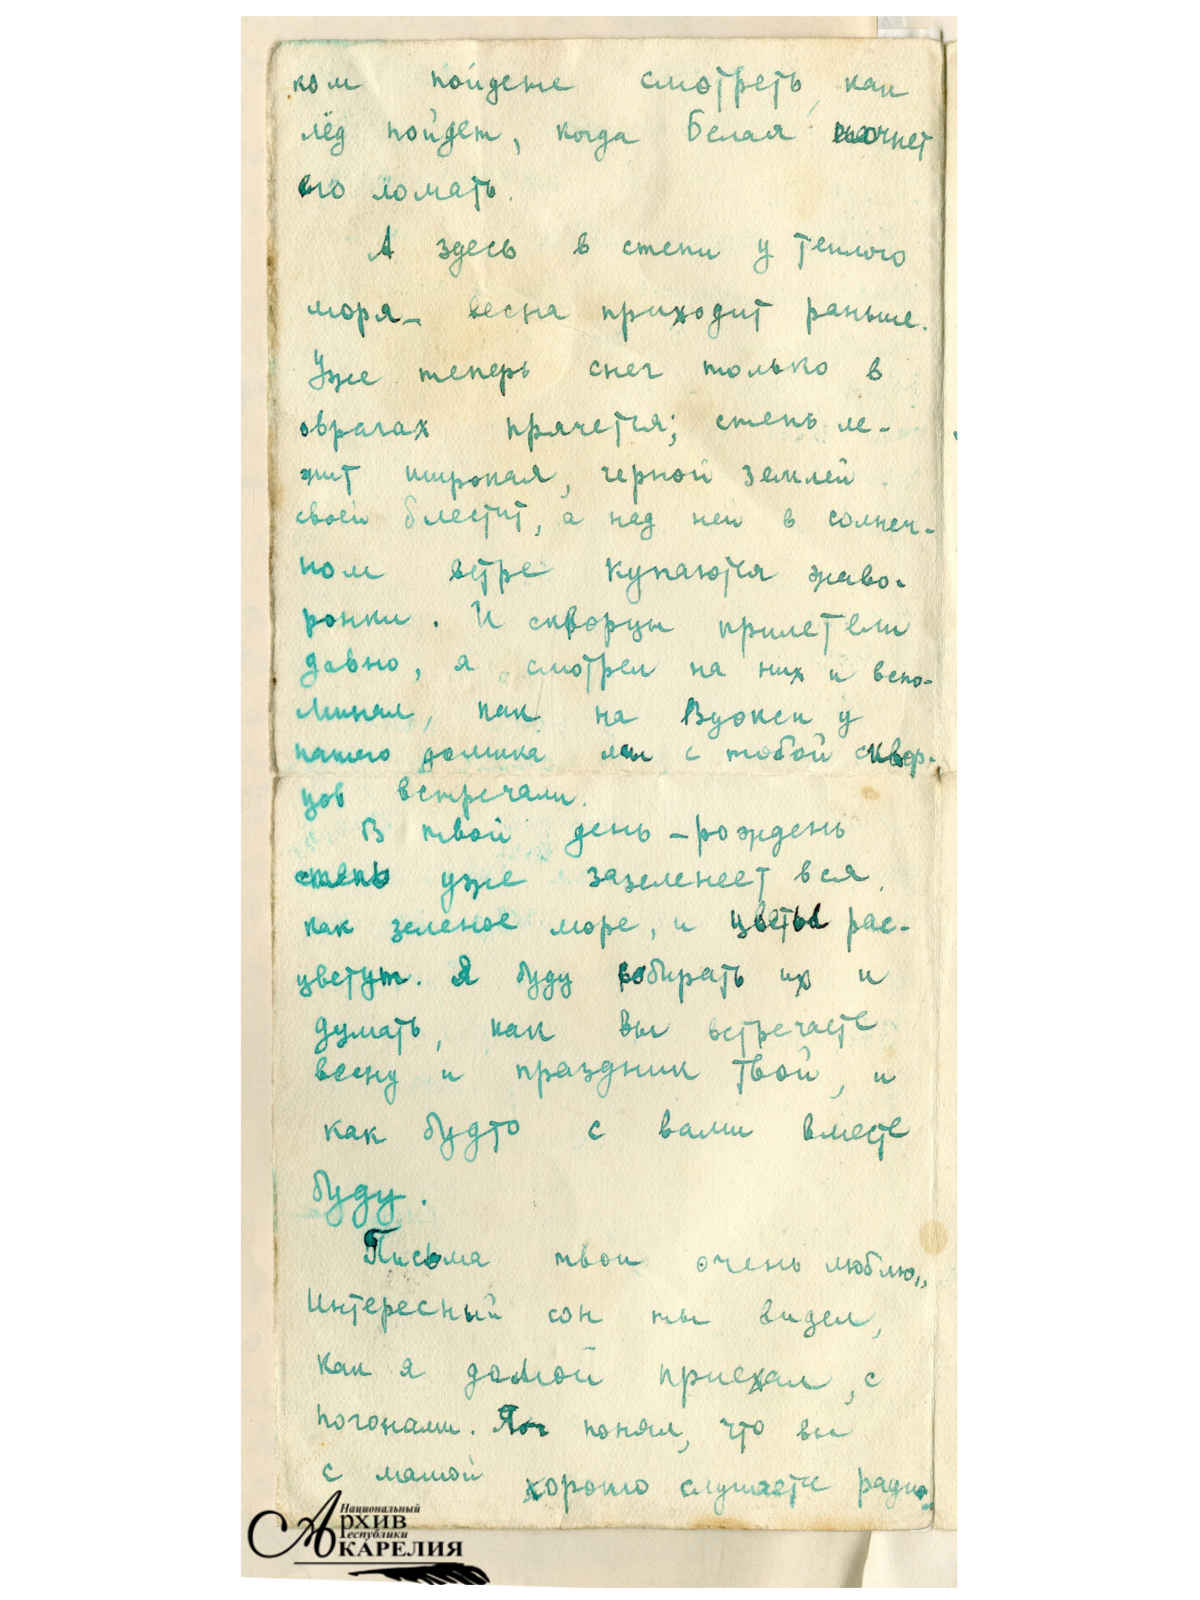 ком пойдете смотреть, как
лёд пойдет, когда Белая начнет
его ломать.
А здесь в степи у теплого
моря – весна приходит раньше.
Уже теперь снег только в
оврагах прячется; степь ле-
жит широкая, черной землей
своей блестит, а над ней в солнеч-
ном ветре купаются жаво-
ронки. И скворцы прилетели
давно, я смотрел на них и вспо-
минал, как на Вуокси у
нашего домика мы с тобой сквор-
цов встречали.
В твой день-рождень
степь уже зазеленеет вся,
как зеленое море, и цветы рас-
цветут. Я буду собирать их и
думать, как вы встречаете
весну и праздник твой, и
как будто с вами вместе
буду.
Письма твои очень люблю.
Интересный сон ты видел,
как я домой приехал, с
погонами. Я понял, что вы
с мамой хорошо слушаете радио.
Национальный
Архив
Республики
Карелия